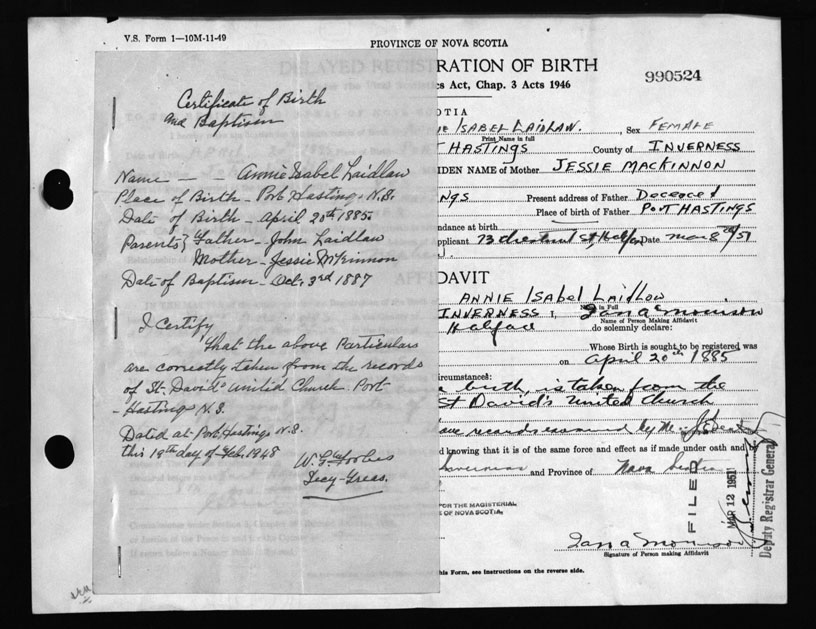 V.S. Form 1—10M-11-49
PROVINCE OF NOVA SCOTIA
DELAYED REGISTRATION OF BIRTH
Act, Chap. 3 Acts 1946
990524
Certificate of Birth
and Baptism
Name — - Annie Isabel Laidlaw
Place of Birth - Port Hastings N.S.
Date of Birth - April 20th 1885
Parents } Father - John Laidlaw
Mother - Jessie McKinnon
Date of Baptism - Oct. 3rd 1887
I Certify
that the above Particulars
are correctly taken from the records
of St. David's United Church Port
Hastings N.S.
Dated at Port Hastings N.S.
this 19th day of Feb. 1948
W. L. Forbes
Secy-Treas.
ISABEL LAIDLAW. Sex FEMALE
Print Name in full
HASTINGS County of INVERNESS
IDEN NAME of Mother JESSIE MACKINNON
NGS Present address of Father Deceaced
Place of birth of Father PORT HASTINGS
ndance at birth
pplicant 73 Chestnut St Halfax Date Mar 8th/51
DAVIT
ANNIE ISABEL LAIDLOW
Name in Full
INVERNESS I,
Name of Person Making Affidavit
Halifax do solemnly declare:
Whose Birth is sought to be registered was
on April 20th 1885
ircumstances:
birth is taken from the
St David's United Church
records examined by Me
d knowing that it is of the same force and effect as if made under oath and by
Inverness and Province of Nova Scotia
FOR THE MAGISTERIAL
OF NOVA SCOTIA.
FILED
MAR 12 1951
Deputy Registrar General
Signature of Person making Affidavit
this Form, see instructions on the reverse side.